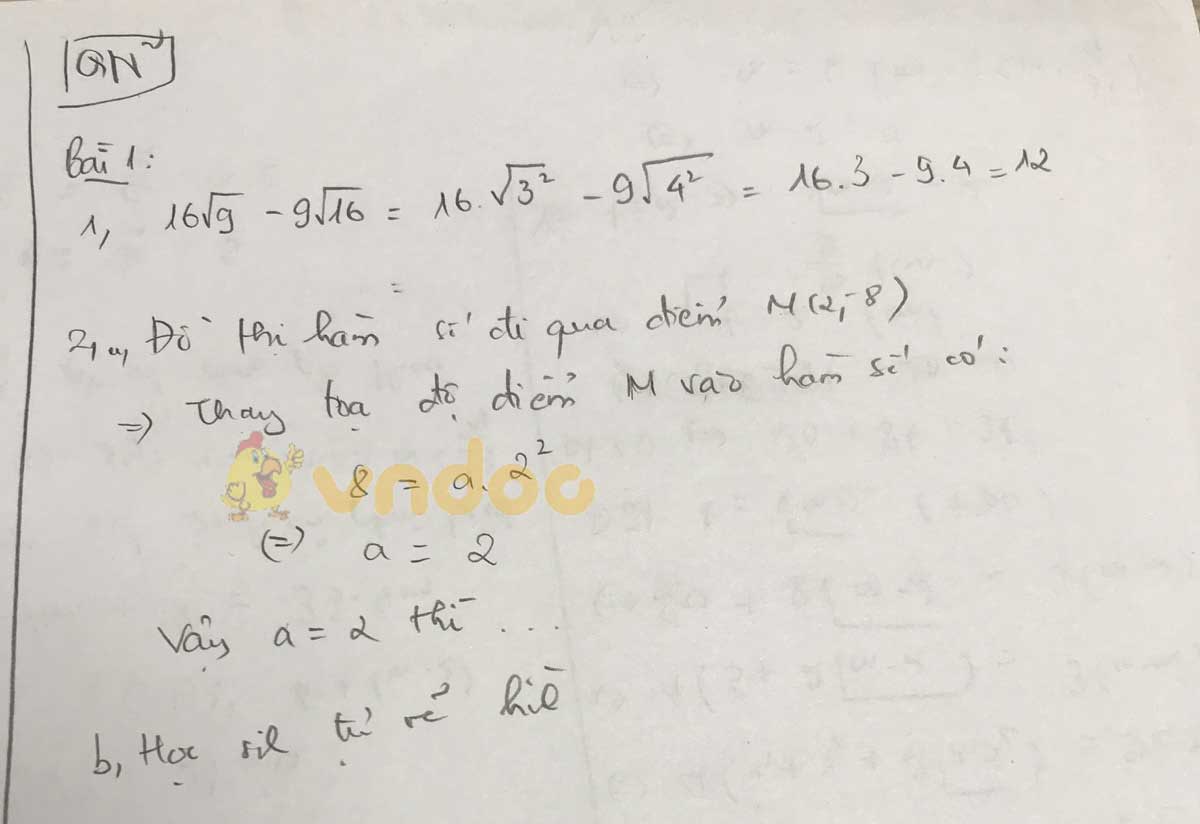 QN
Bài 1:
1, 16√9 - 9√16 = 16.√3² - 9√4² = 16.3 - 9.4 = 12
=
2, a, Đồ thị hàm số đi qua điểm M(2;-8)
=> Thay toạ độ điểm M vào hàm số có:
8 = a.2²
(=) a = 2
Vậy a = 2 thì ...
b, Học sil tự vẽ hil
vndoc